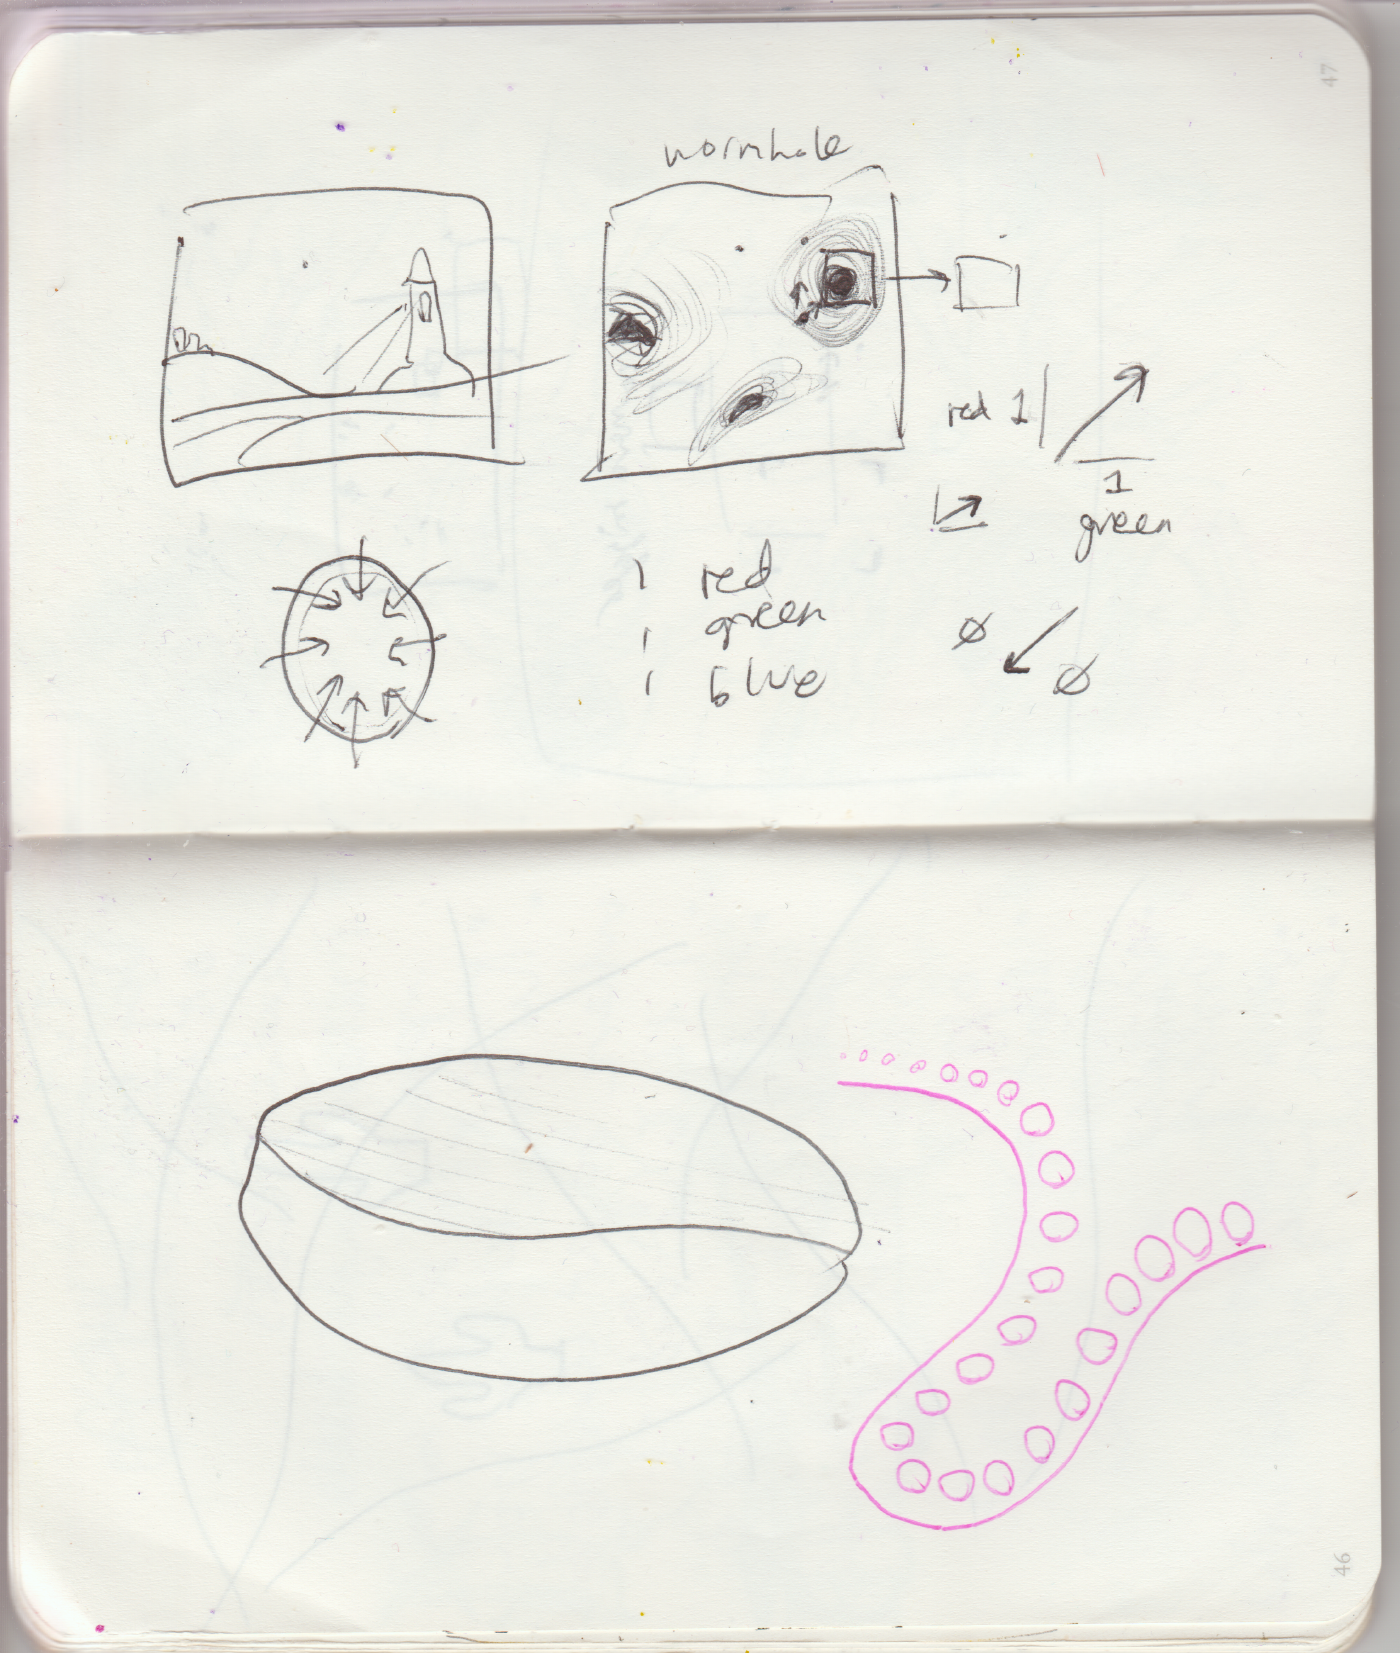 47
wormhole
red 1
1
green
1 red
green
1
1 blue
Ø
Ø
46